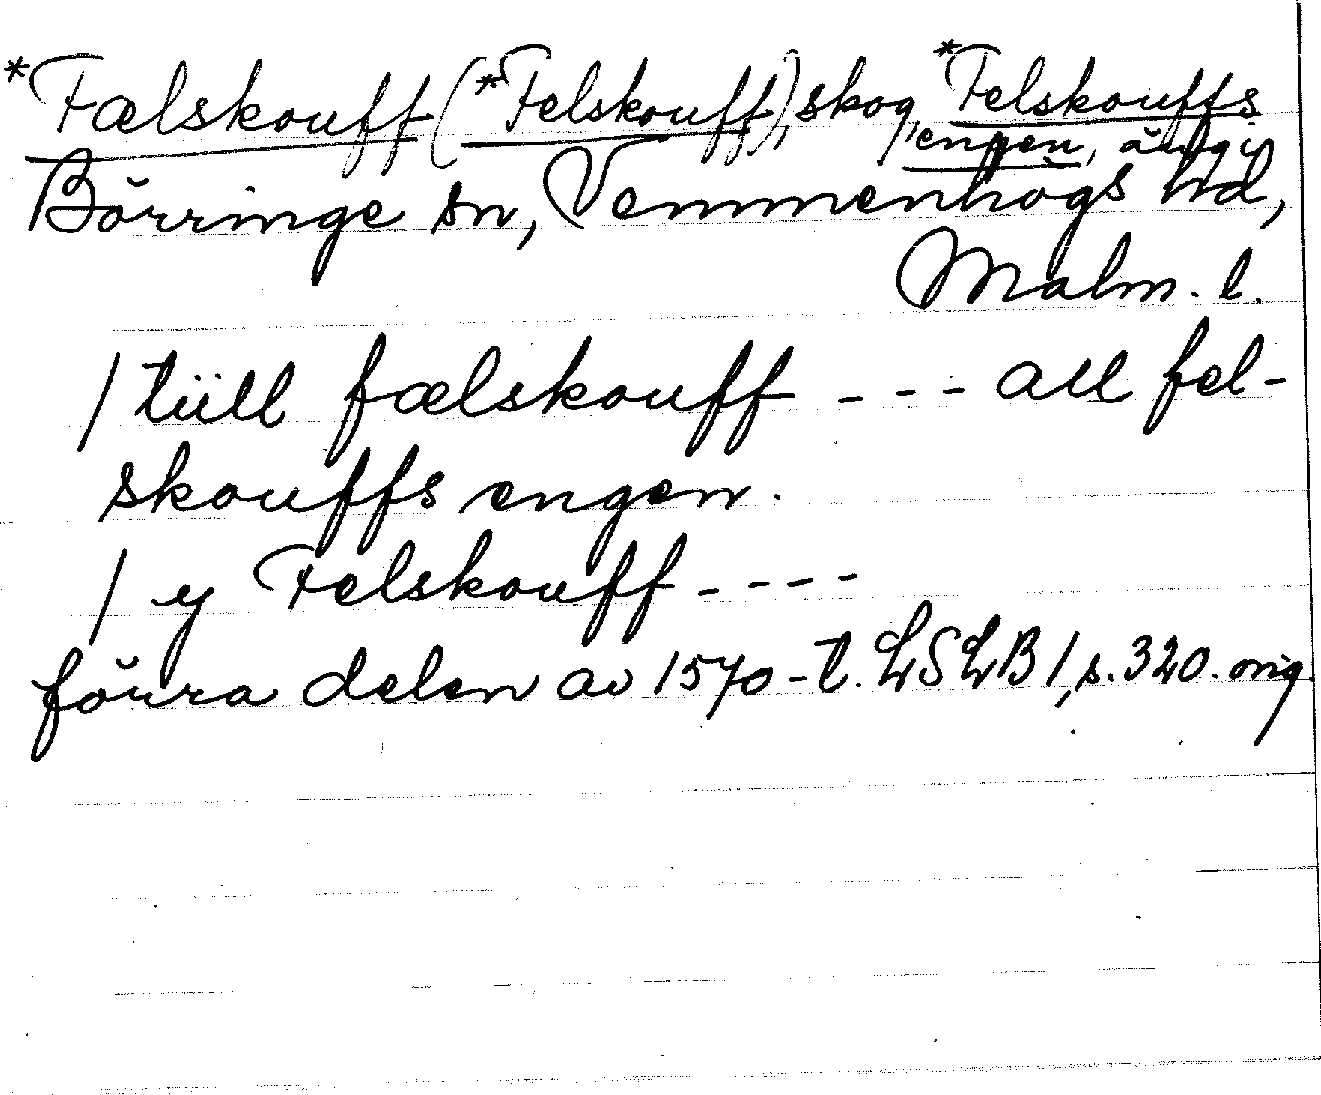 *Fælskouff (*Felskouff), skog, *Felskouffs
engen, äng i
Börringe sn, Vemmenhögs hd,
Malm. l.
/ tüll fælskouff - - - all fel-
skouffs engen.
/ y Felskouff - - - -
förra delen av 1570-t. LSLB 1, s. 320. orig.